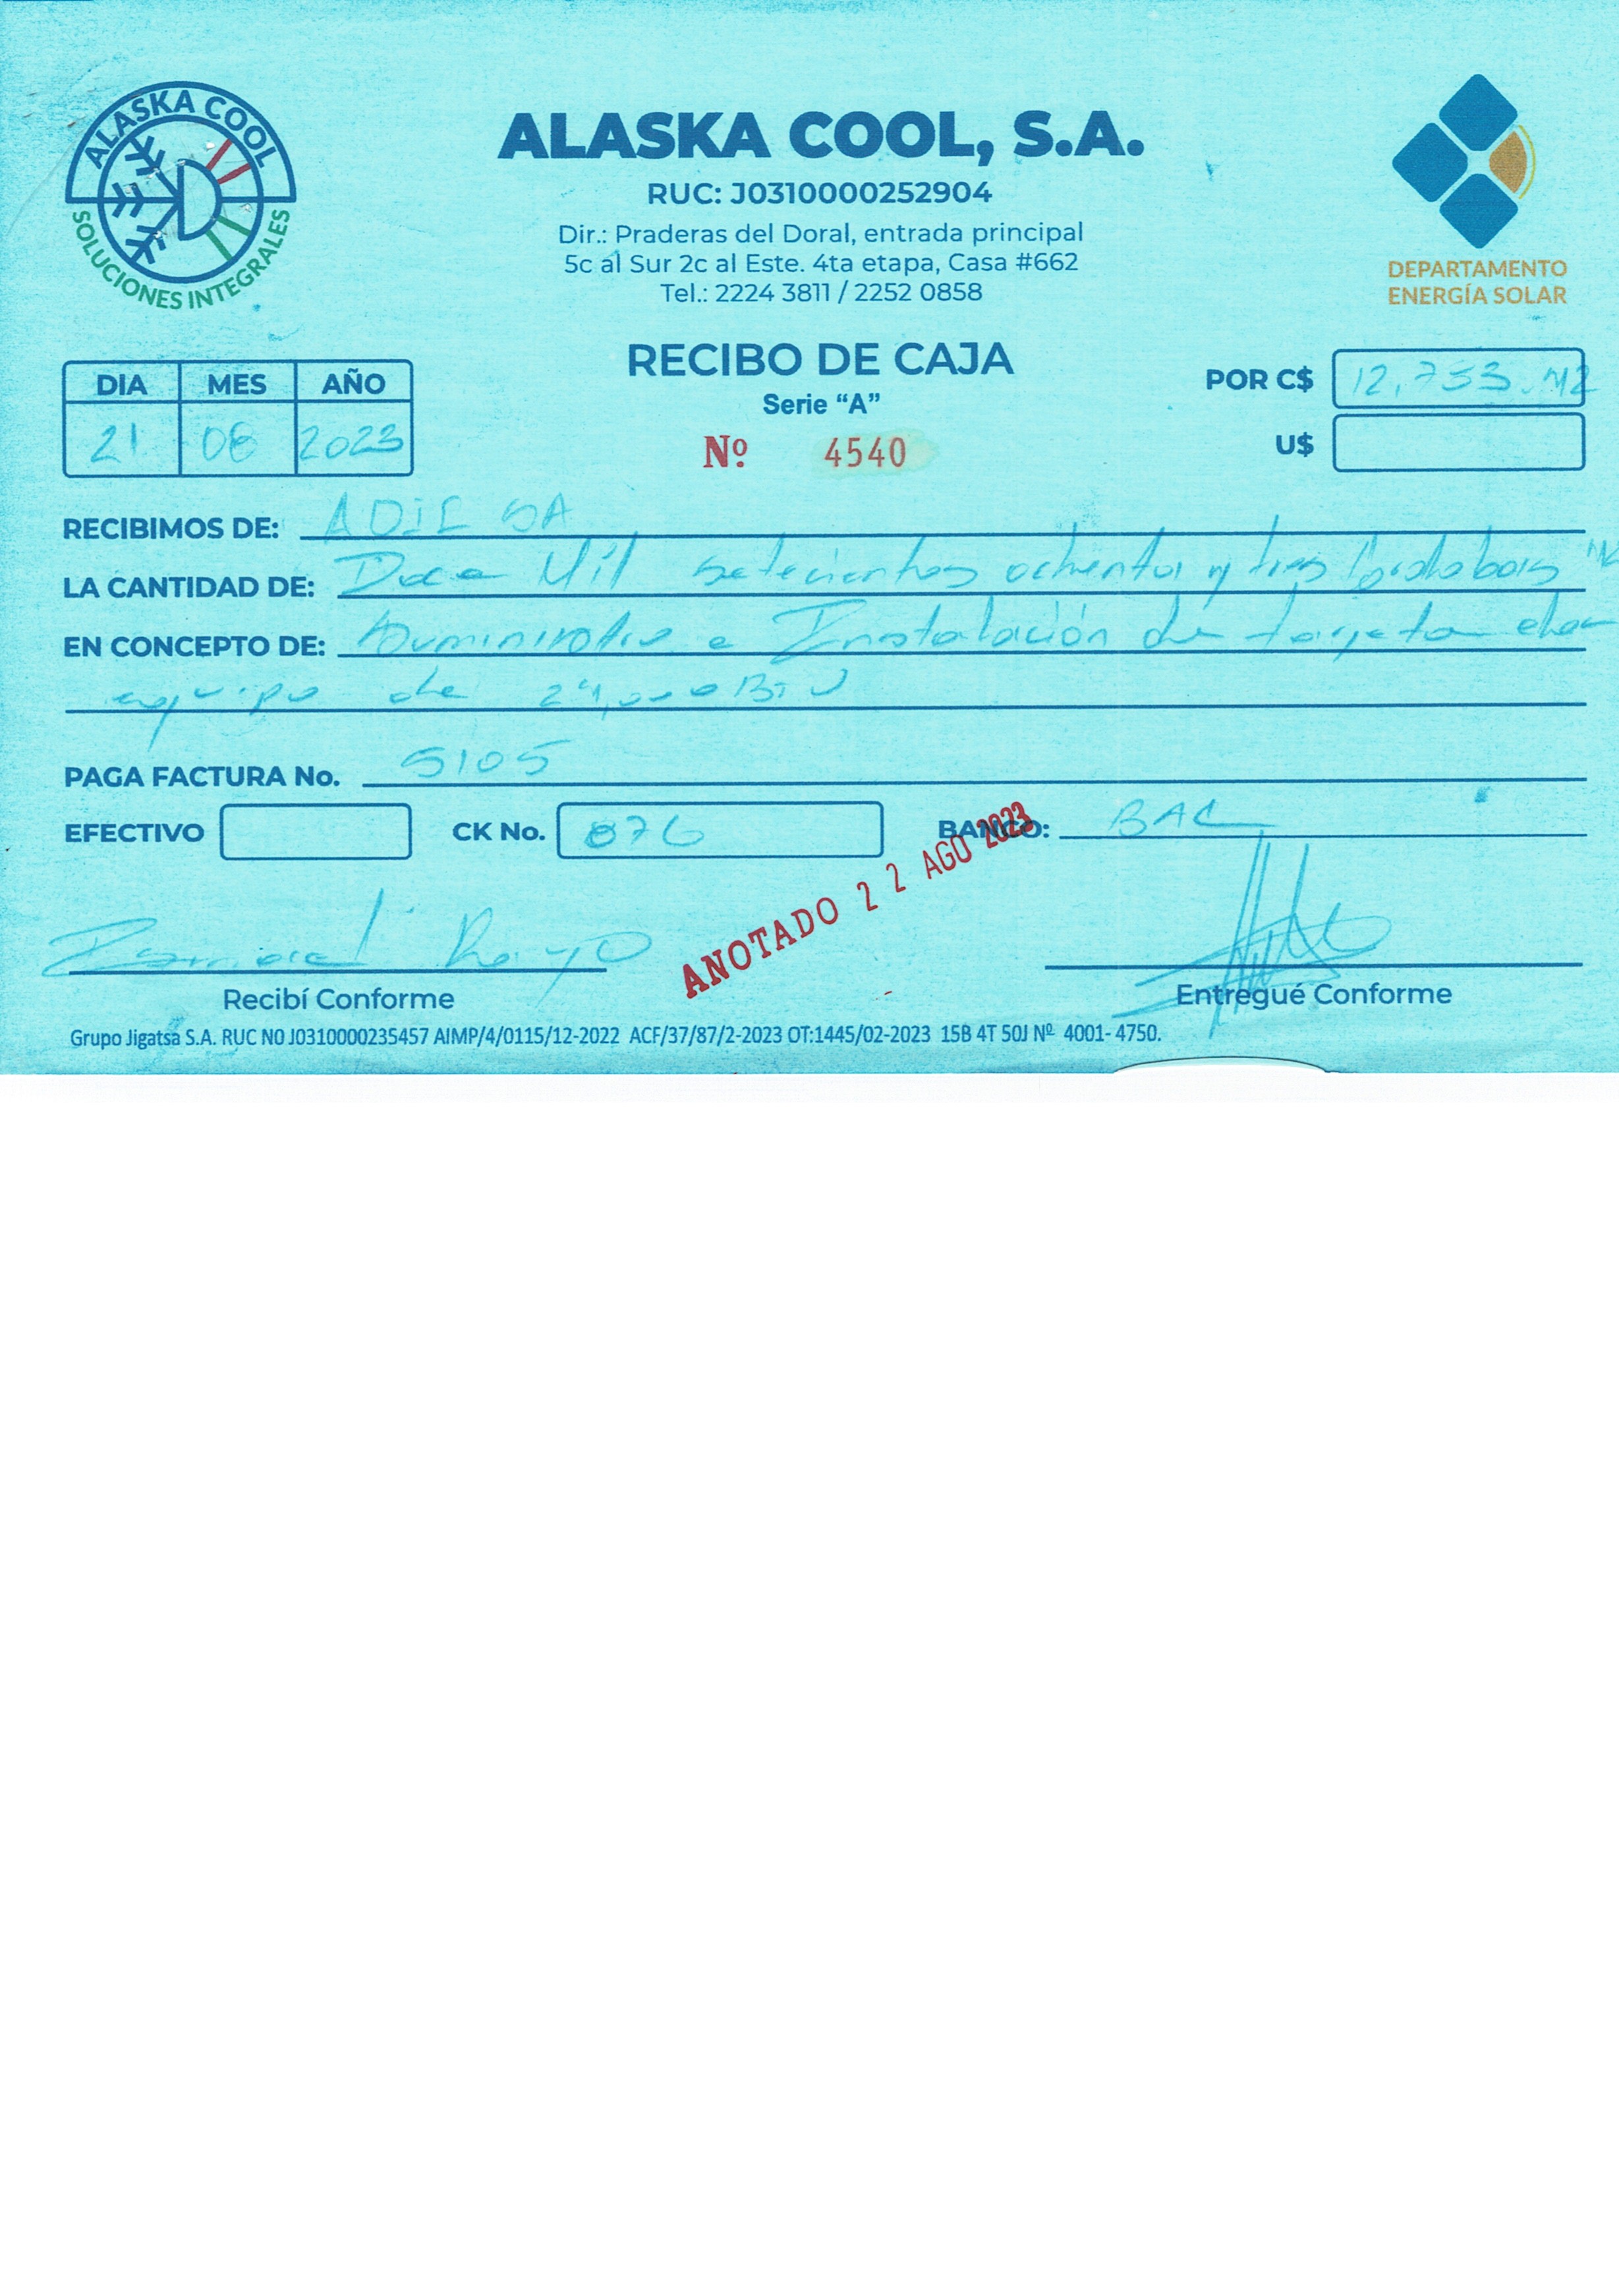 ALASKA COOL
SOLUCIONES INTEGRALES
ALASKA COOL, S.A.
RUC: J0310000252904
Dir.: Praderas del Doral, entrada principal
5c al Sur 2c al Este. 4ta etapa, Casa #662
Tel.: 2224 3811 / 2252 0858
DEPARTAMENTO
ENERGÍA SOLAR
RECIBO DE CAJA
Serie “A”
Nº 4540
DIA MES AÑO
21 2023
POR C$
U$
RECIBIMOS DE: SA
LA CANTIDAD DE: Doce Mil setecientos ochenta y tres Cordobas
EN CONCEPTO DE: Suministro e Instalación de tarjeta
equipo de 24,000 BTU
PAGA FACTURA No. 5105
EFECTIVO CK No. 876 BANCO: BAC
ANOTADO 22 AGO 2023
Rayo
Recibí Conforme
Entregué Conforme
Grupo Jigatsa S.A. RUC N0 J0310000235457 AIMP/4/0115/12-2022 ACF/37/87/2-2023 OT:1445/02-2023 15B 4T 50J Nº 4001- 4750.